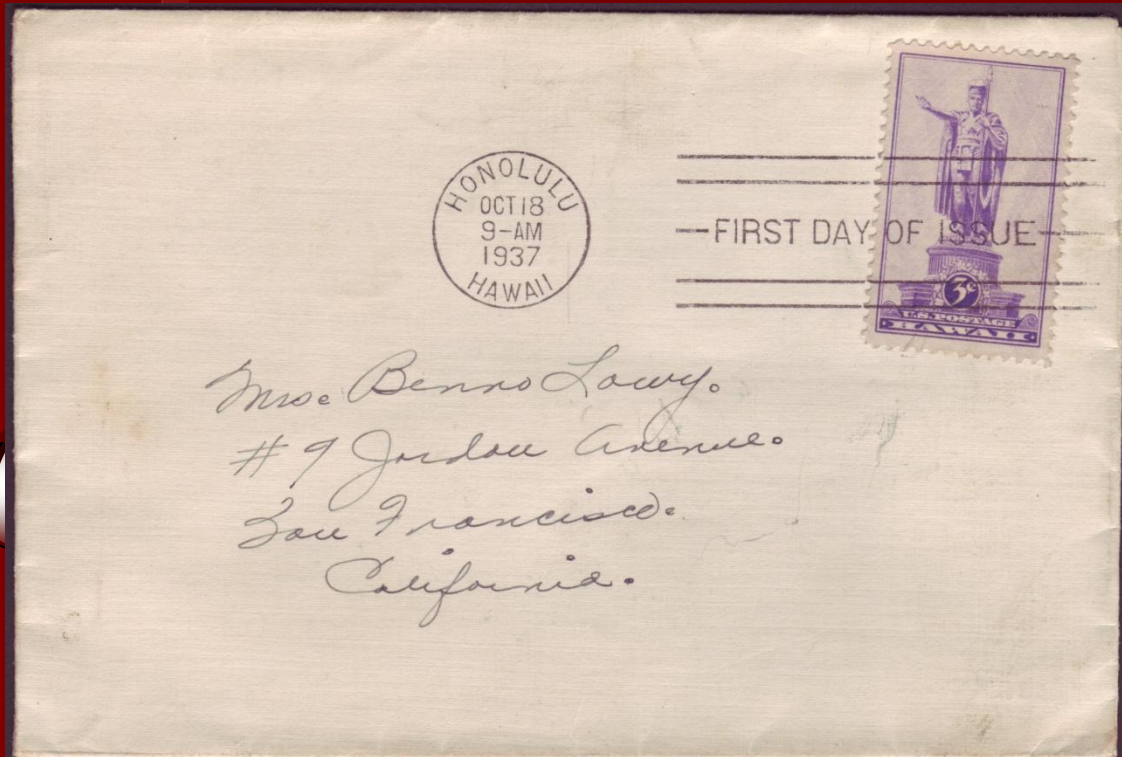 HONOLULU
OCT 18
9-AM
1937
HAWAII
FIRST DAY OF ISSUE
3c
U.S. POSTAGE
HAWAII
Mrs. Benno Lowy.
#9 Jordan Avenue.
San Francisco.
California.